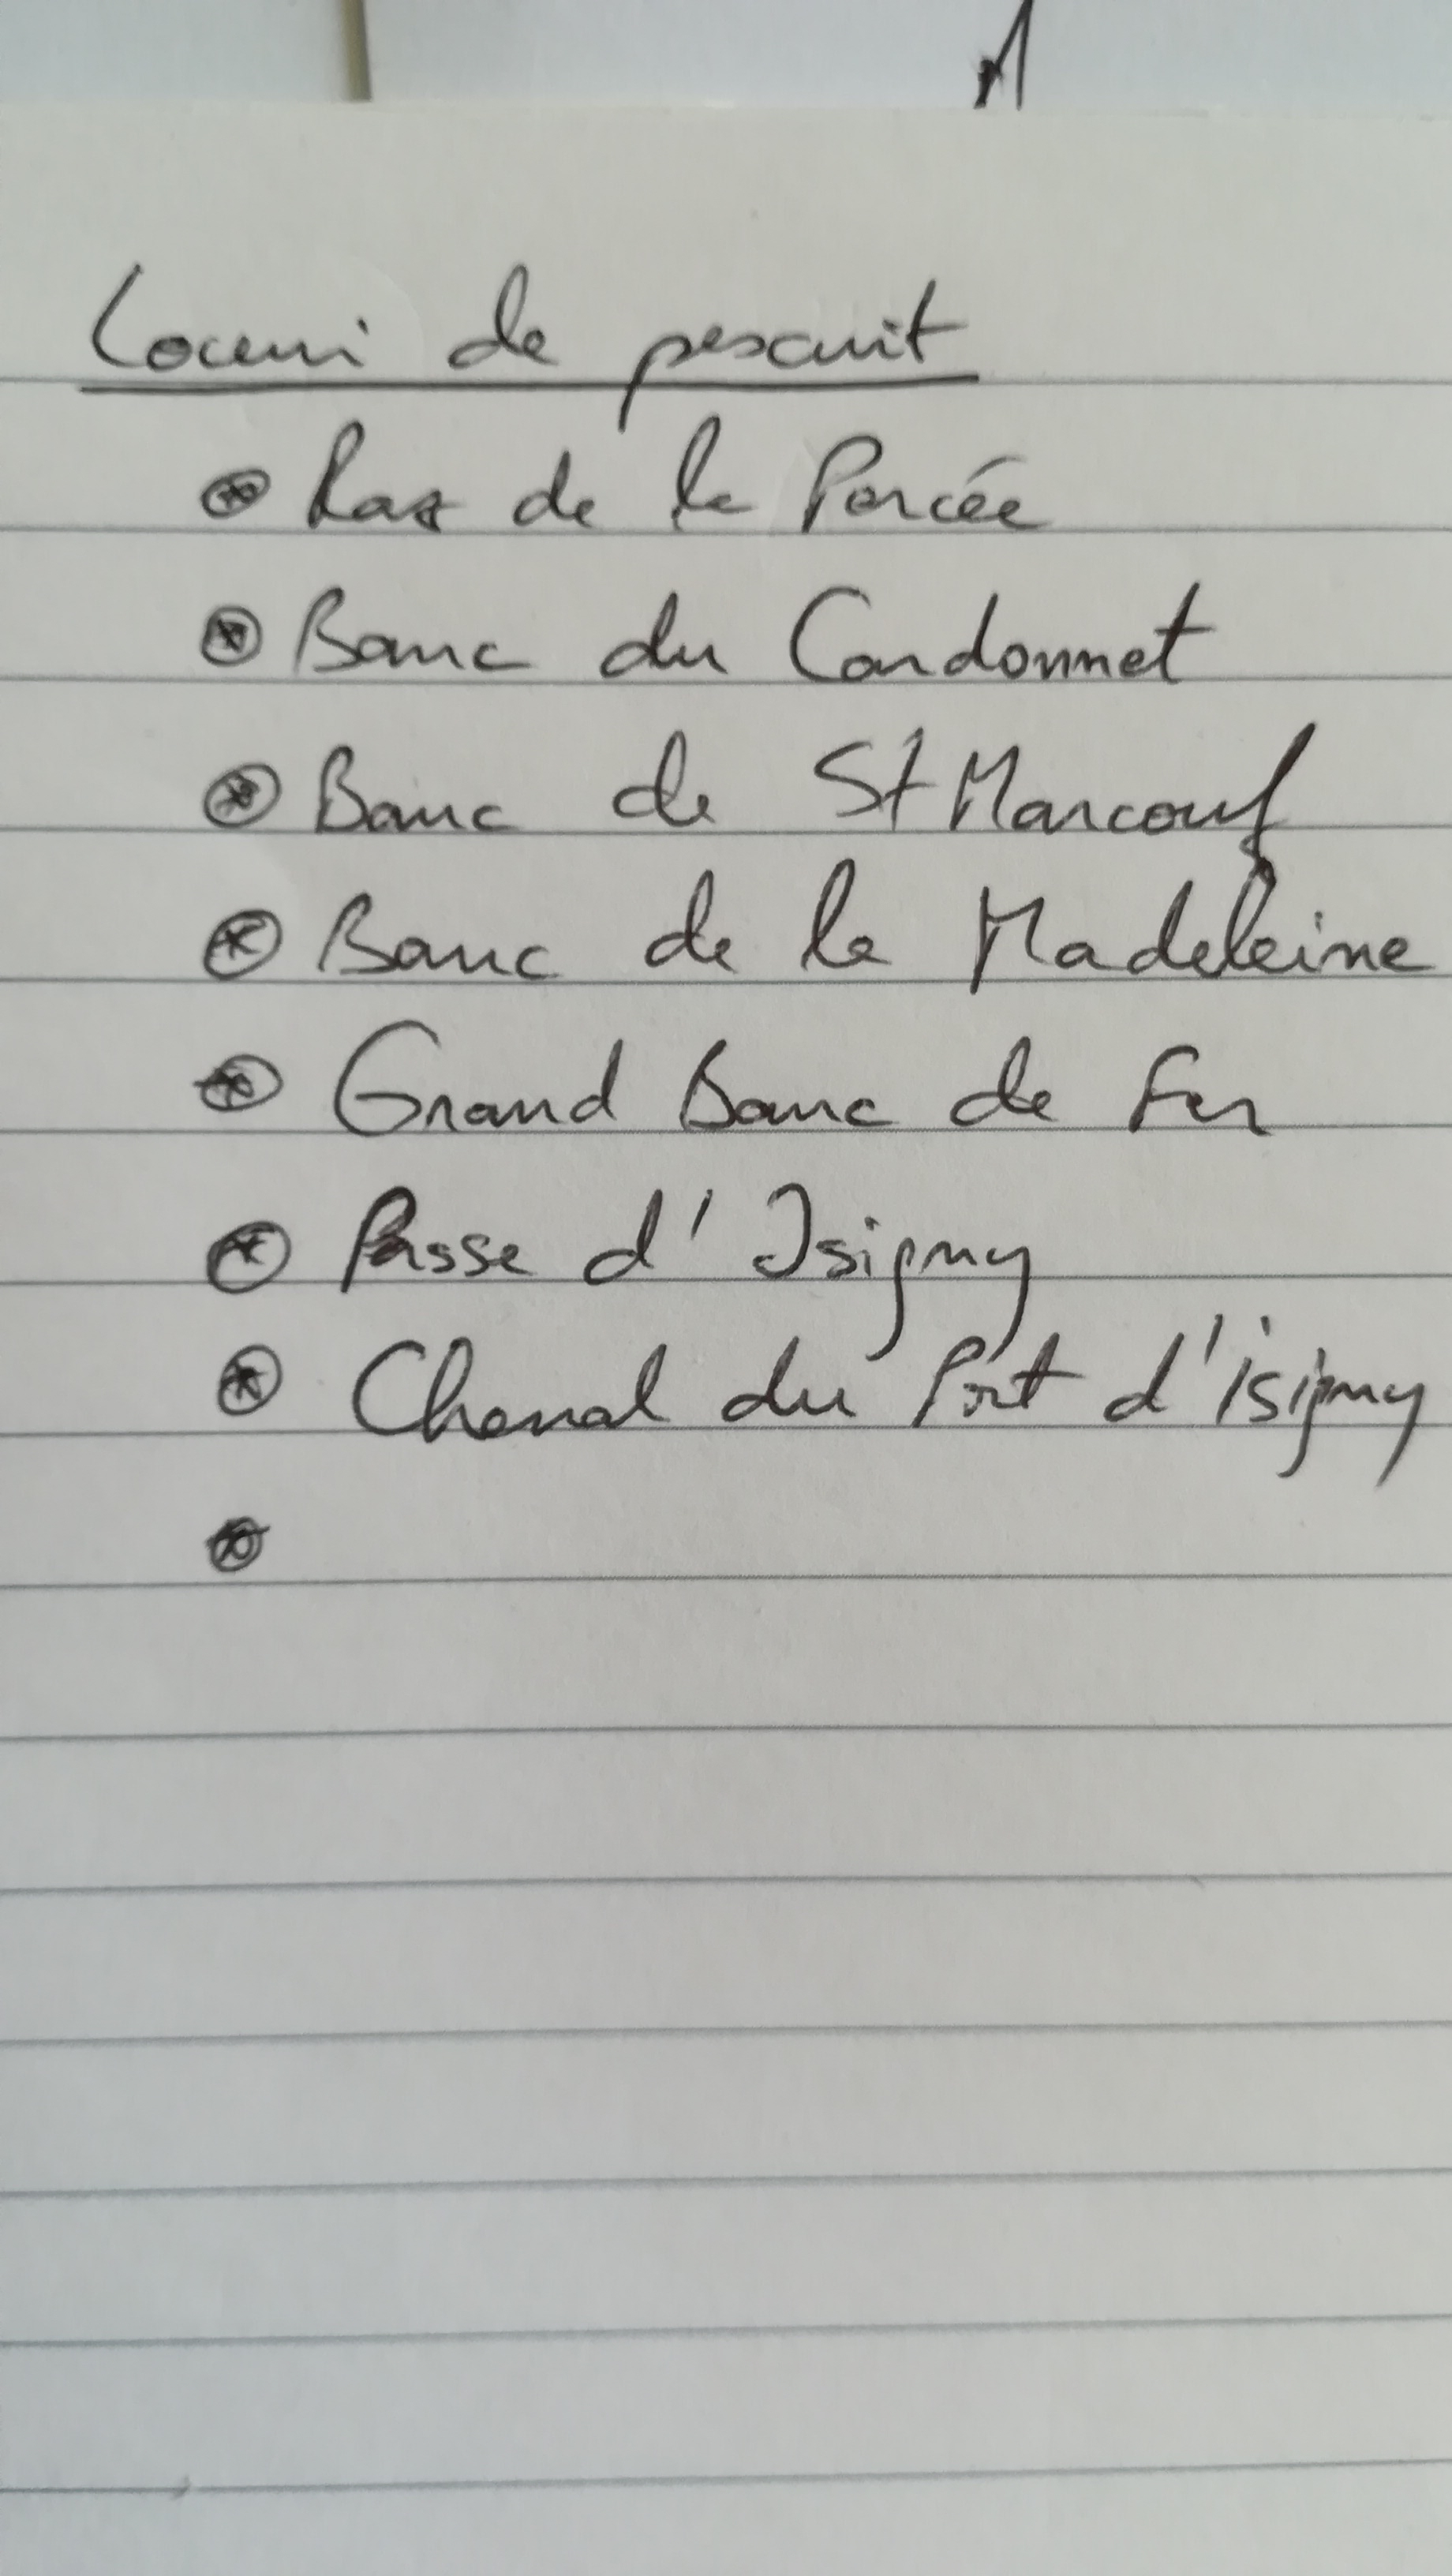 Locuri de pescuit
Raz de la Percée
Banc du Cardonnet
Banc de St Marcouf
Banc de la Madeleine
Grand Banc de Fer
Passe d'Isigny
Chenal du Port d'isigny